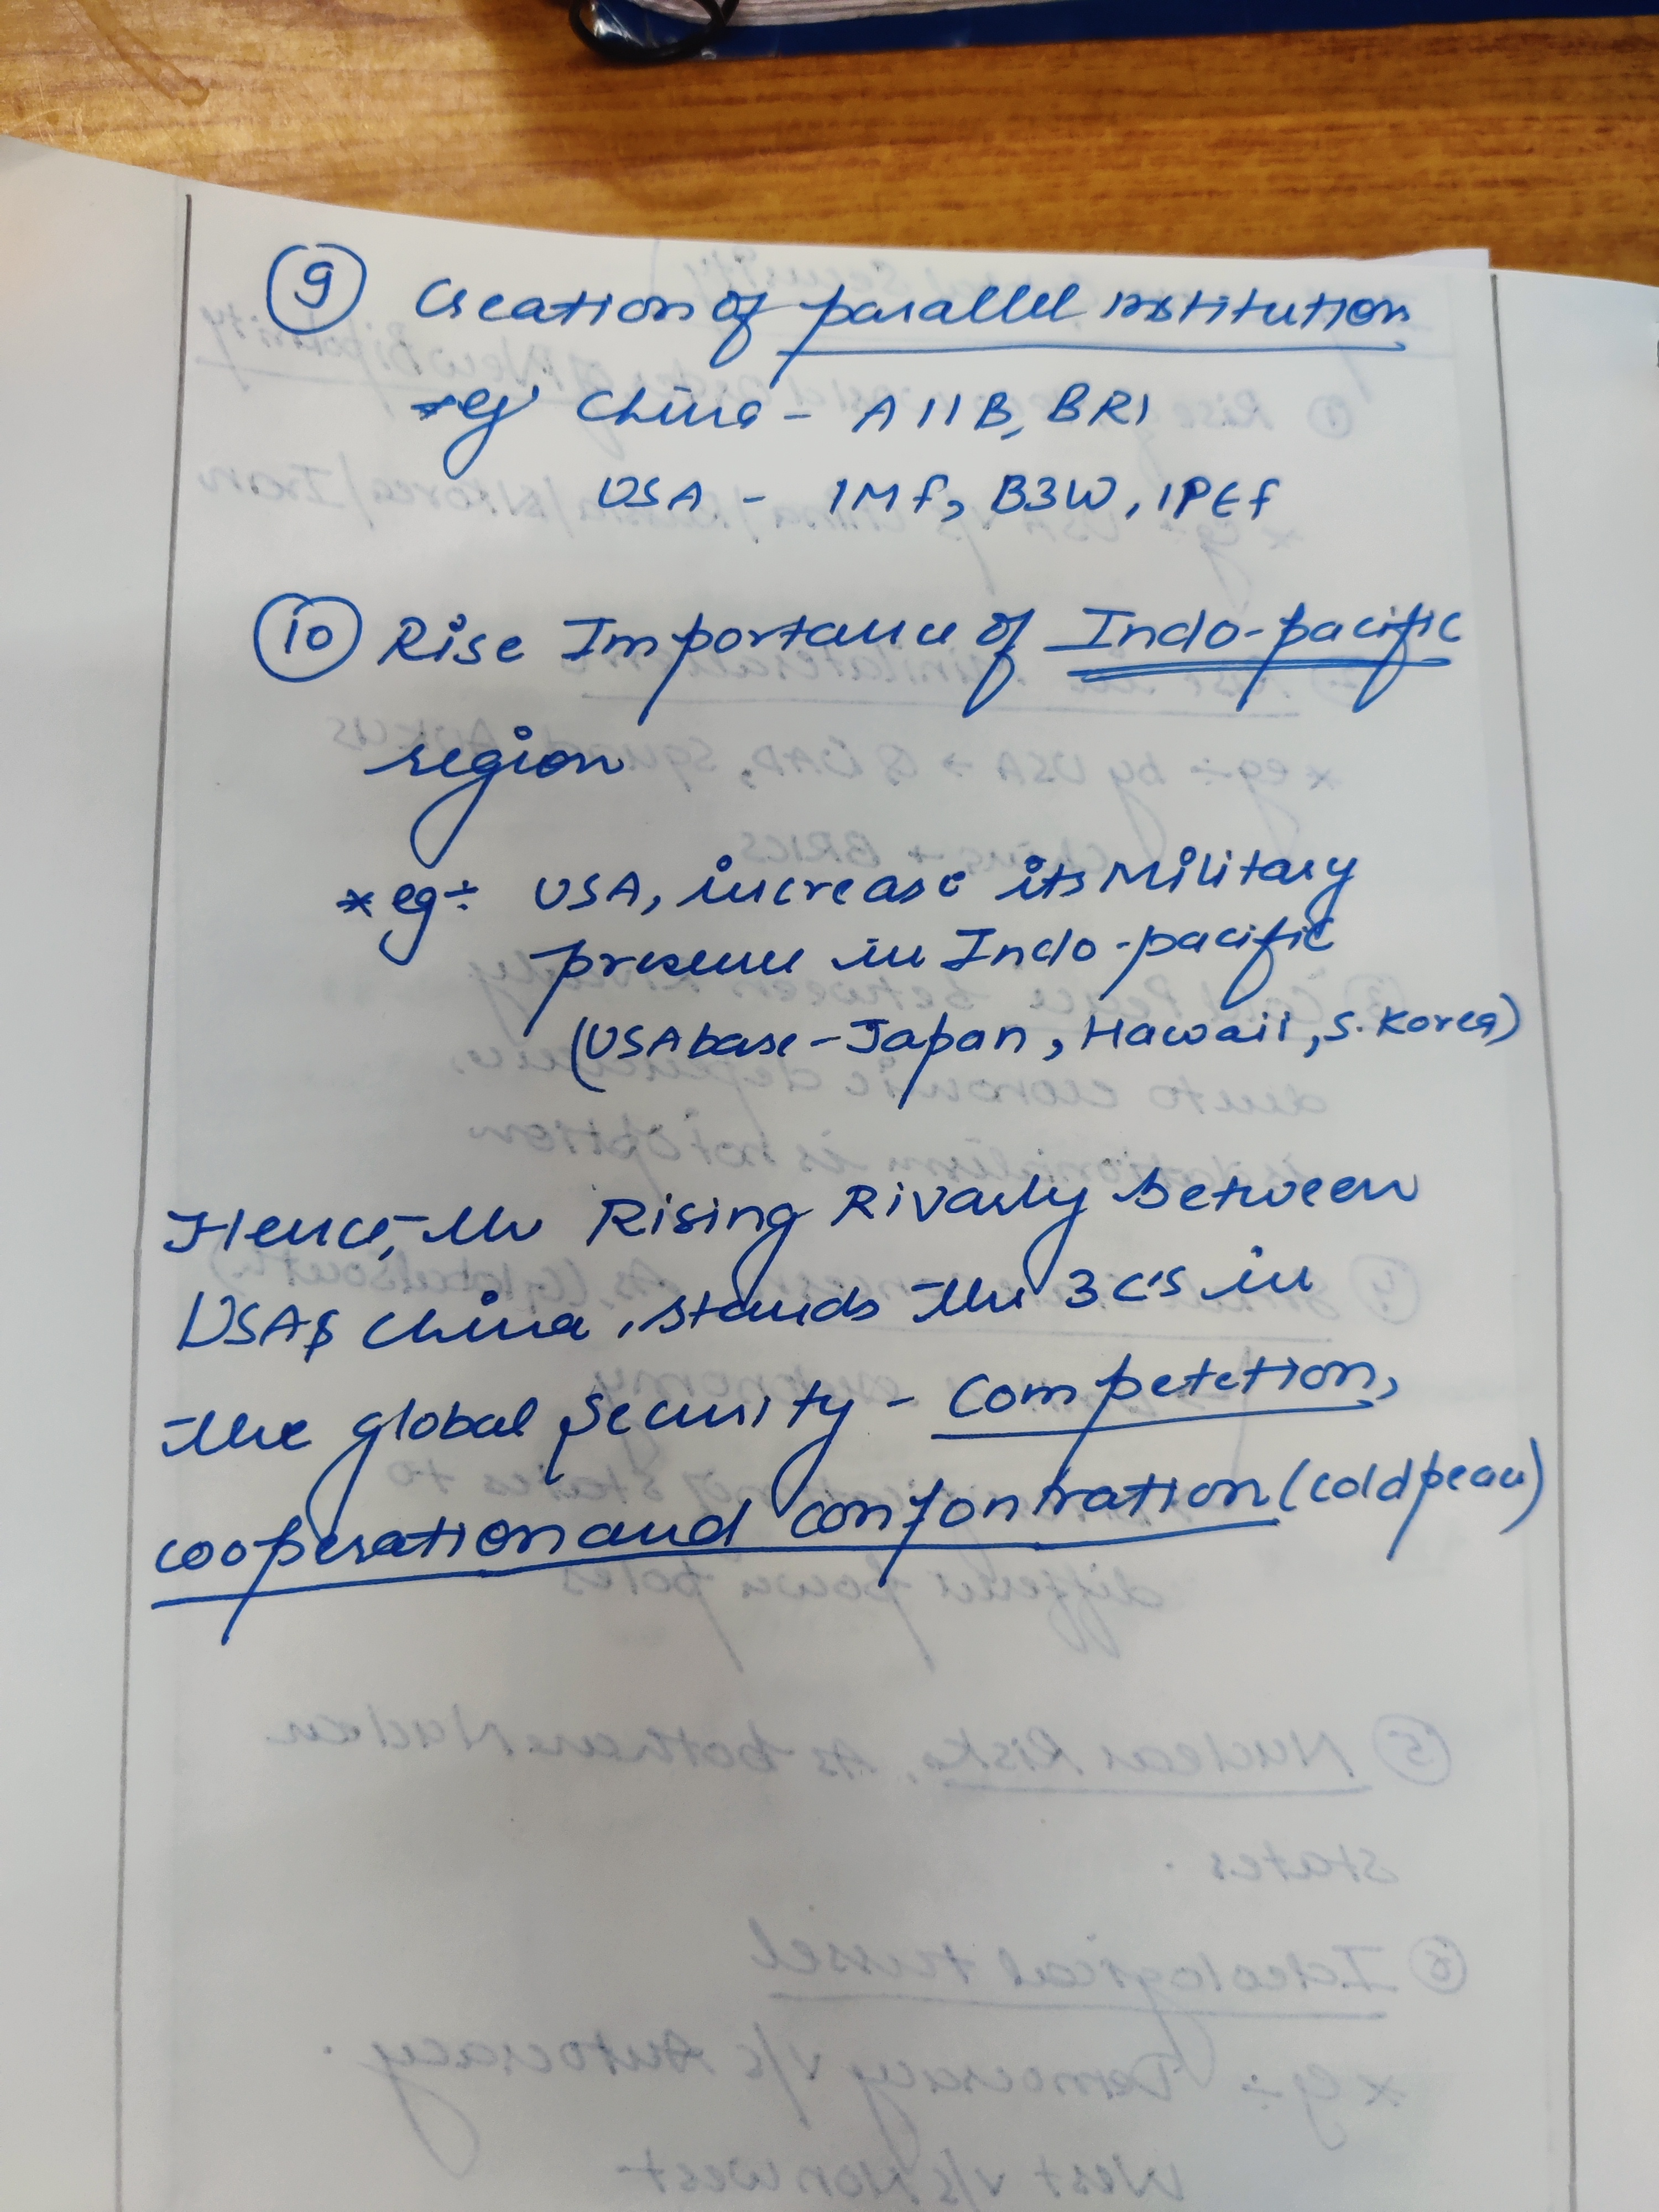 9 Creation of parallel institution
*eg China - AIIB, BRI
USA - IMF, B3W, IPEF
10 Rise Importance of Indo-pacific
region
* eg÷ USA, increase its Military
presence in Indo-pacific
(USA base - Japan, Hawaii, S. Korea)
Hence, the Rising Rivarly between
USA & China, stands the 3 C's in
the global security - Competetion,
cooperation and confontration (cold peace)